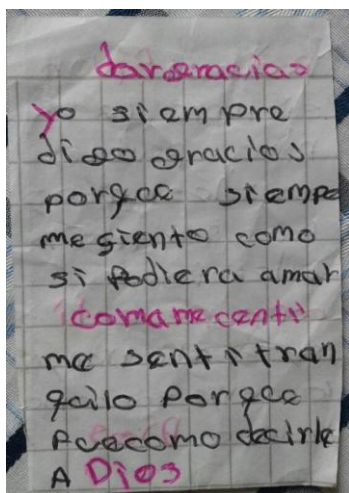 dar gracias
yo siempre
digo gracias
porqce siempe
me siento como
si podiera amar
comame centi
me senti tran
qcilo porqce
fcecomo decirle
A Dios